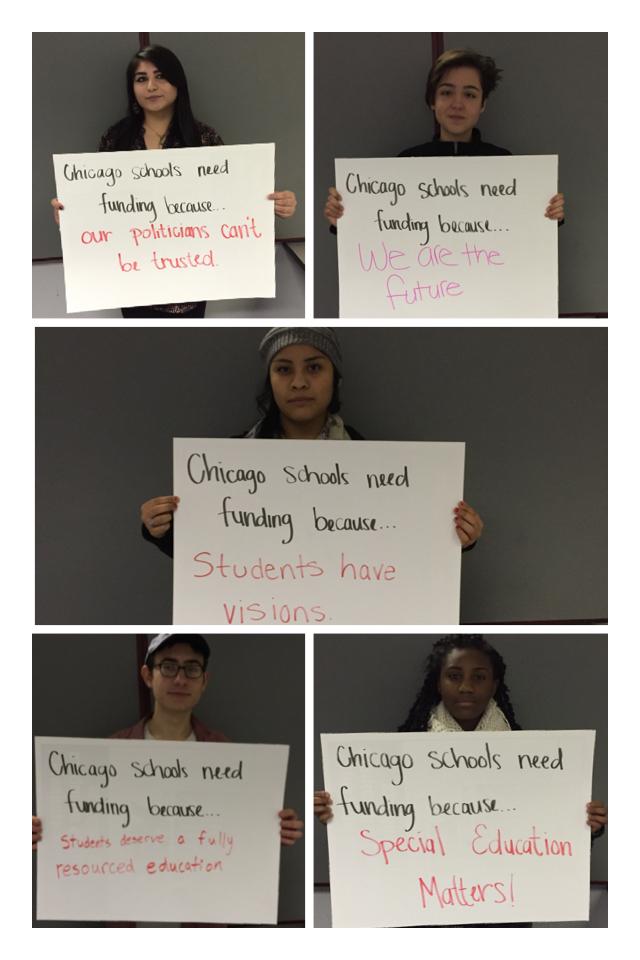 Chicago schools need
funding because...
our politicians can't
be trusted.
Chicago schools need
funding because...
We are the
future
Chicago schools need
funding because...
Students have
visions.
Chicago schools need
funding because...
Students deserve a fully
resourced education
Chicago schools need
funding because...
Special Education
Matters!